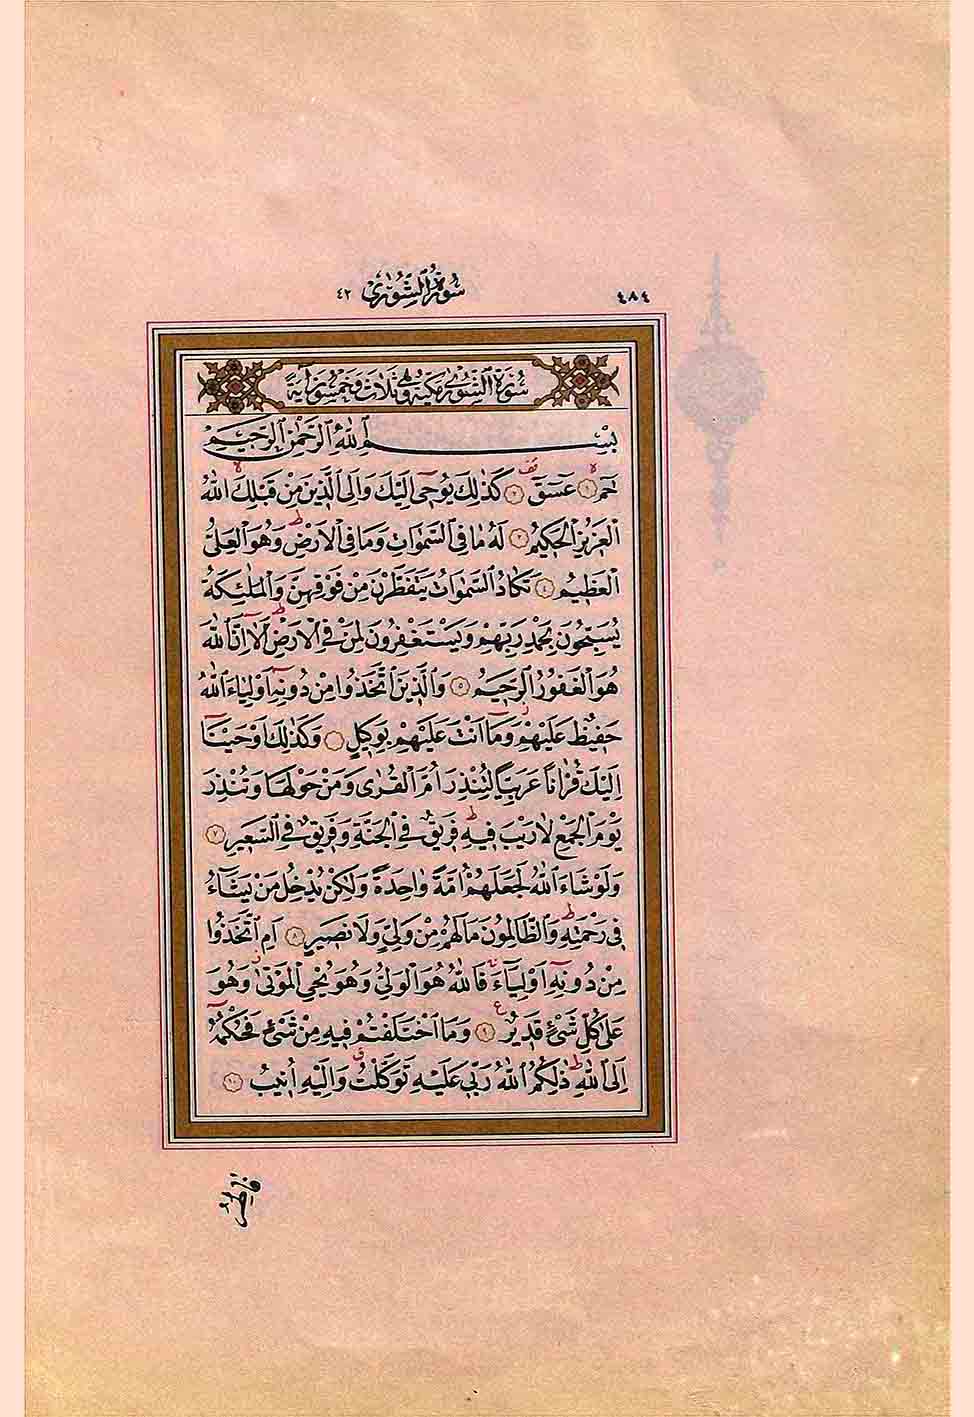 ٤٨٤ سُورَةُ الشُّورٰى ٤٢
سُورَةُ الشُّورٰى مَكِّيَّةٌ وَهِىَ ثَلَاثٌ وَخَمْسُونَ اٰيَةً
بِسْمِ اللّٰهِ الرَّحْمٰنِ الرَّحِيمِ
حٰمٓ ۝١ عٓسٓقٓ ۝٢ كَذٰلِكَ يُوحٖٓى اِلَيْكَ وَاِلَى الَّذٖينَ مِنْ قَبْلِكَ اللّٰهُ
الْعَزٖيزُ الْحَكٖيمُ ۝٣ لَهُ مَا فِى السَّمٰوَاتِ وَمَا فِى الْاَرْضِ وَهُوَ الْعَلِىُّ
الْعَظٖيمُ ۝٤ تَكَادُ السَّمٰوَاتُ يَتَفَطَّرْنَ مِنْ فَوْقِهِنَّ وَالْمَلٰٓئِكَةُ
يُسَبِّحُونَ بِحَمْدِ رَبِّهِمْ وَيَسْتَغْفِرُونَ لِمَنْ فِى الْاَرْضِ اَلَٓا اِنَّ اللّٰهَ
هُوَ الْغَفُورُ الرَّحٖيمُ ۝٥ وَالَّذٖينَ اتَّخَذُوا مِنْ دُونِهٖٓ اَوْلِيَٓاءَ اللّٰهُ
حَفٖيظٌ عَلَيْهِمْ وَمَٓا اَنْتَ عَلَيْهِمْ بِوَكٖيلٍ ۝ وَكَذٰلِكَ اَوْحَيْنَٓا
اِلَيْكَ قُرْاٰناً عَرَبِياًّ لِتُنْذِرَ اُمَّ الْقُرٰى وَمَنْ حَوْلَهَا وَتُنْذِرَ
يَوْمَ الْجَمْعِ لَا رَيْبَ فٖيهِ فَرٖيقٌ فِى الْجَنَّةِ وَفَرٖيقٌ فِى السَّعٖيرِ ۝٧
وَلَوْ شَٓاءَ اللّٰهُ لَجَعَلَهُمْ اُمَّةً وَاحِدَةً وَلٰكِنْ يُدْخِلُ مَنْ يَشَٓاءُ
فٖى رَحْمَتِهٖ وَالظَّالِمُونَ مَا لَهُمْ مِنْ وَلِىٍّ وَلَا نَصٖيرٍ ۝٨ اَمِ اتَّخَذُوا
مِنْ دُونِهٖٓ اَوْلِيَٓاءَ فَاللّٰهُ هُوَ الْوَلِىُّ وَهُوَ يُحْيِ الْمَوْتٰى وَهُوَ
عَلٰى كُلِّ شَىْءٍ قَدٖيرٌ ۝٩ وَمَا اخْتَلَفْتُمْ فٖيهِ مِنْ شَىْءٍ فَحُكْمُهُٓ
اِلَى اللّٰهِ ذٰلِكُمُ اللّٰهُ رَبّٖى عَلَيْهِ تَوَكَّلْتُ وَاِلَيْهِ اُنٖيبُ ۝١٠
فَاطِرُ